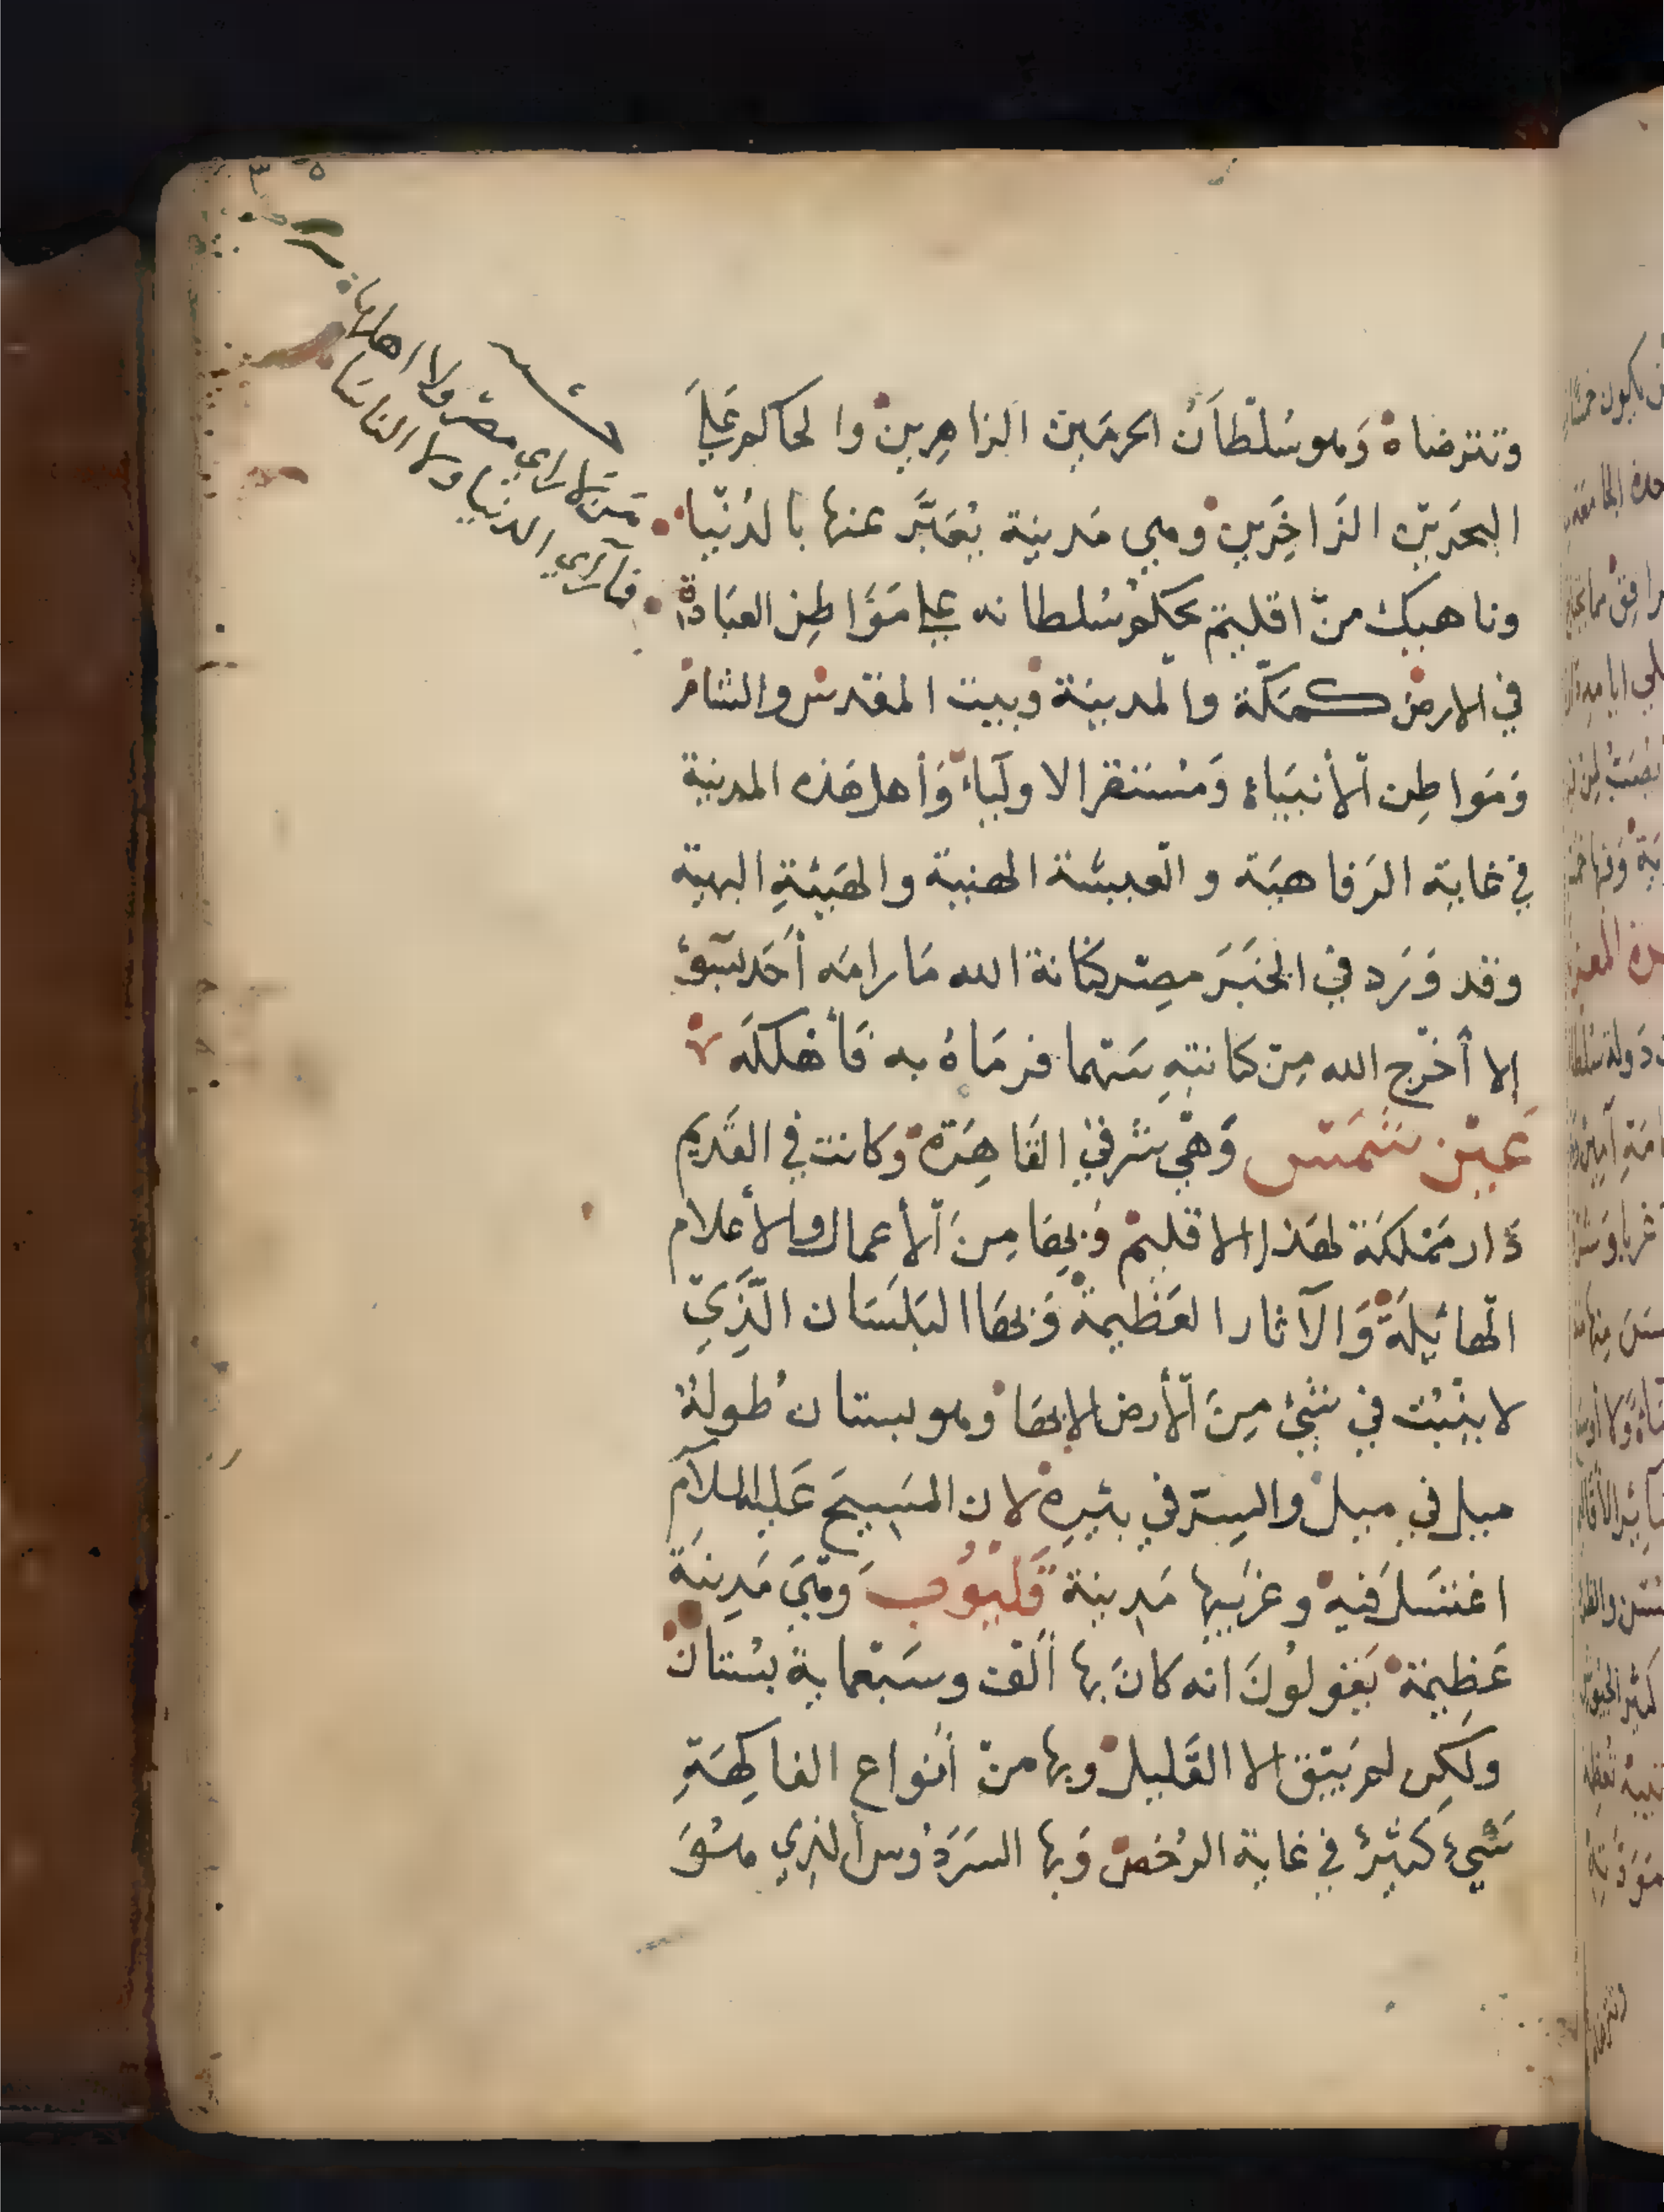 وتترضاه وهو سُلْطَان الحرمَين الزاهِرين والحاكم عَلَى
البحرَين الزَاخِرَين وهي مَدينة يُعَبَّر عنها بالدُنْيا
وناهيك منْ اقليم يحكم سُلطانه على مَوَاطِن العبَادة
في الارض كمَكّة والمدينَة وبيت المقدس والشام
وَمَواطِن الأنبيَاء وَمُستقر الاولياء وَأهل هَذه المدينة
في غاية الرَفاهيَة والعيشة الهنية والهَيئةِ البهية
وقد وَرَد في الخبَرَ مِصر كنانة الله مَا رامَه أحَد بسوءٍ
إلا أخرَج الله مِن كنانتِهِ سَهما فرمَاهُ به فَأهلكَه
عَين شَمْس وَهْي شرقي القَاهِرَة وكانت في القَديم
دَار مَمْلكَة لهَذا الاقليم وَبهَا مِنَ الأعمال والأعلام
الهائِلَة وَالآثار العَظيمة وَبهَا البَلسَان الَّذِي
لا ينْبُت في شَيْءٍ مِنَ الأرض إلا بهَا وهو بستان طوله
ميل في ميل والسِر في بئرِهِ لان المَسِيحَ عَليه السلام
اغتسَل فيه وغربَيها مَدِينة قَليُوُب وَهيَ مَدِينَة
عَظِيمَة يَقولُونَ انه كانَ بها ألف وسَبعماية بُستان
ولكِن لم يَبْق الا القَليل وبها منْ أنواع الفاكِهَةِ
شَيْءٍ كَثيرٌ في غاية الرُخص وَبها السَرَدُوس الذي هُوَ
مَن لا راي مصر ولا اهلها
فما راي الدنيا ولا الناسَا